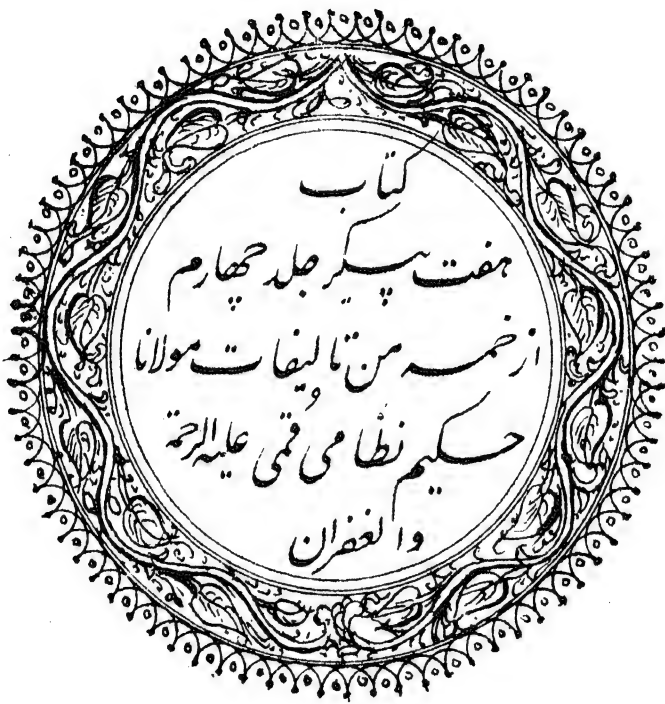 کتاب
هفت پیکر جلد چهارم
از خمسه من تالیفات مولانا
حکیم نظامی قمی علیه الرحمة
والغفران